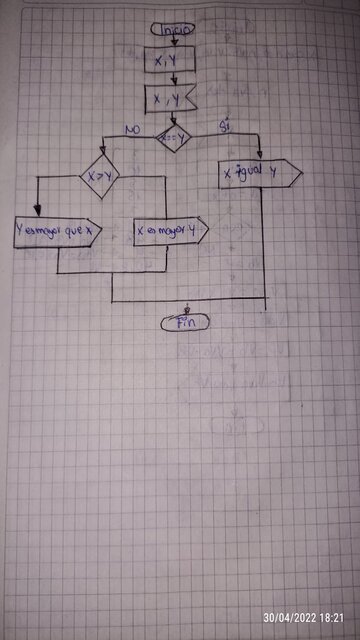 Inicio
X, Y
X, Y
NO
X==Y
Si
X>Y
X igual Y
Y es mayor que X
X es mayor Y
Fin
30/04/2022 18:21